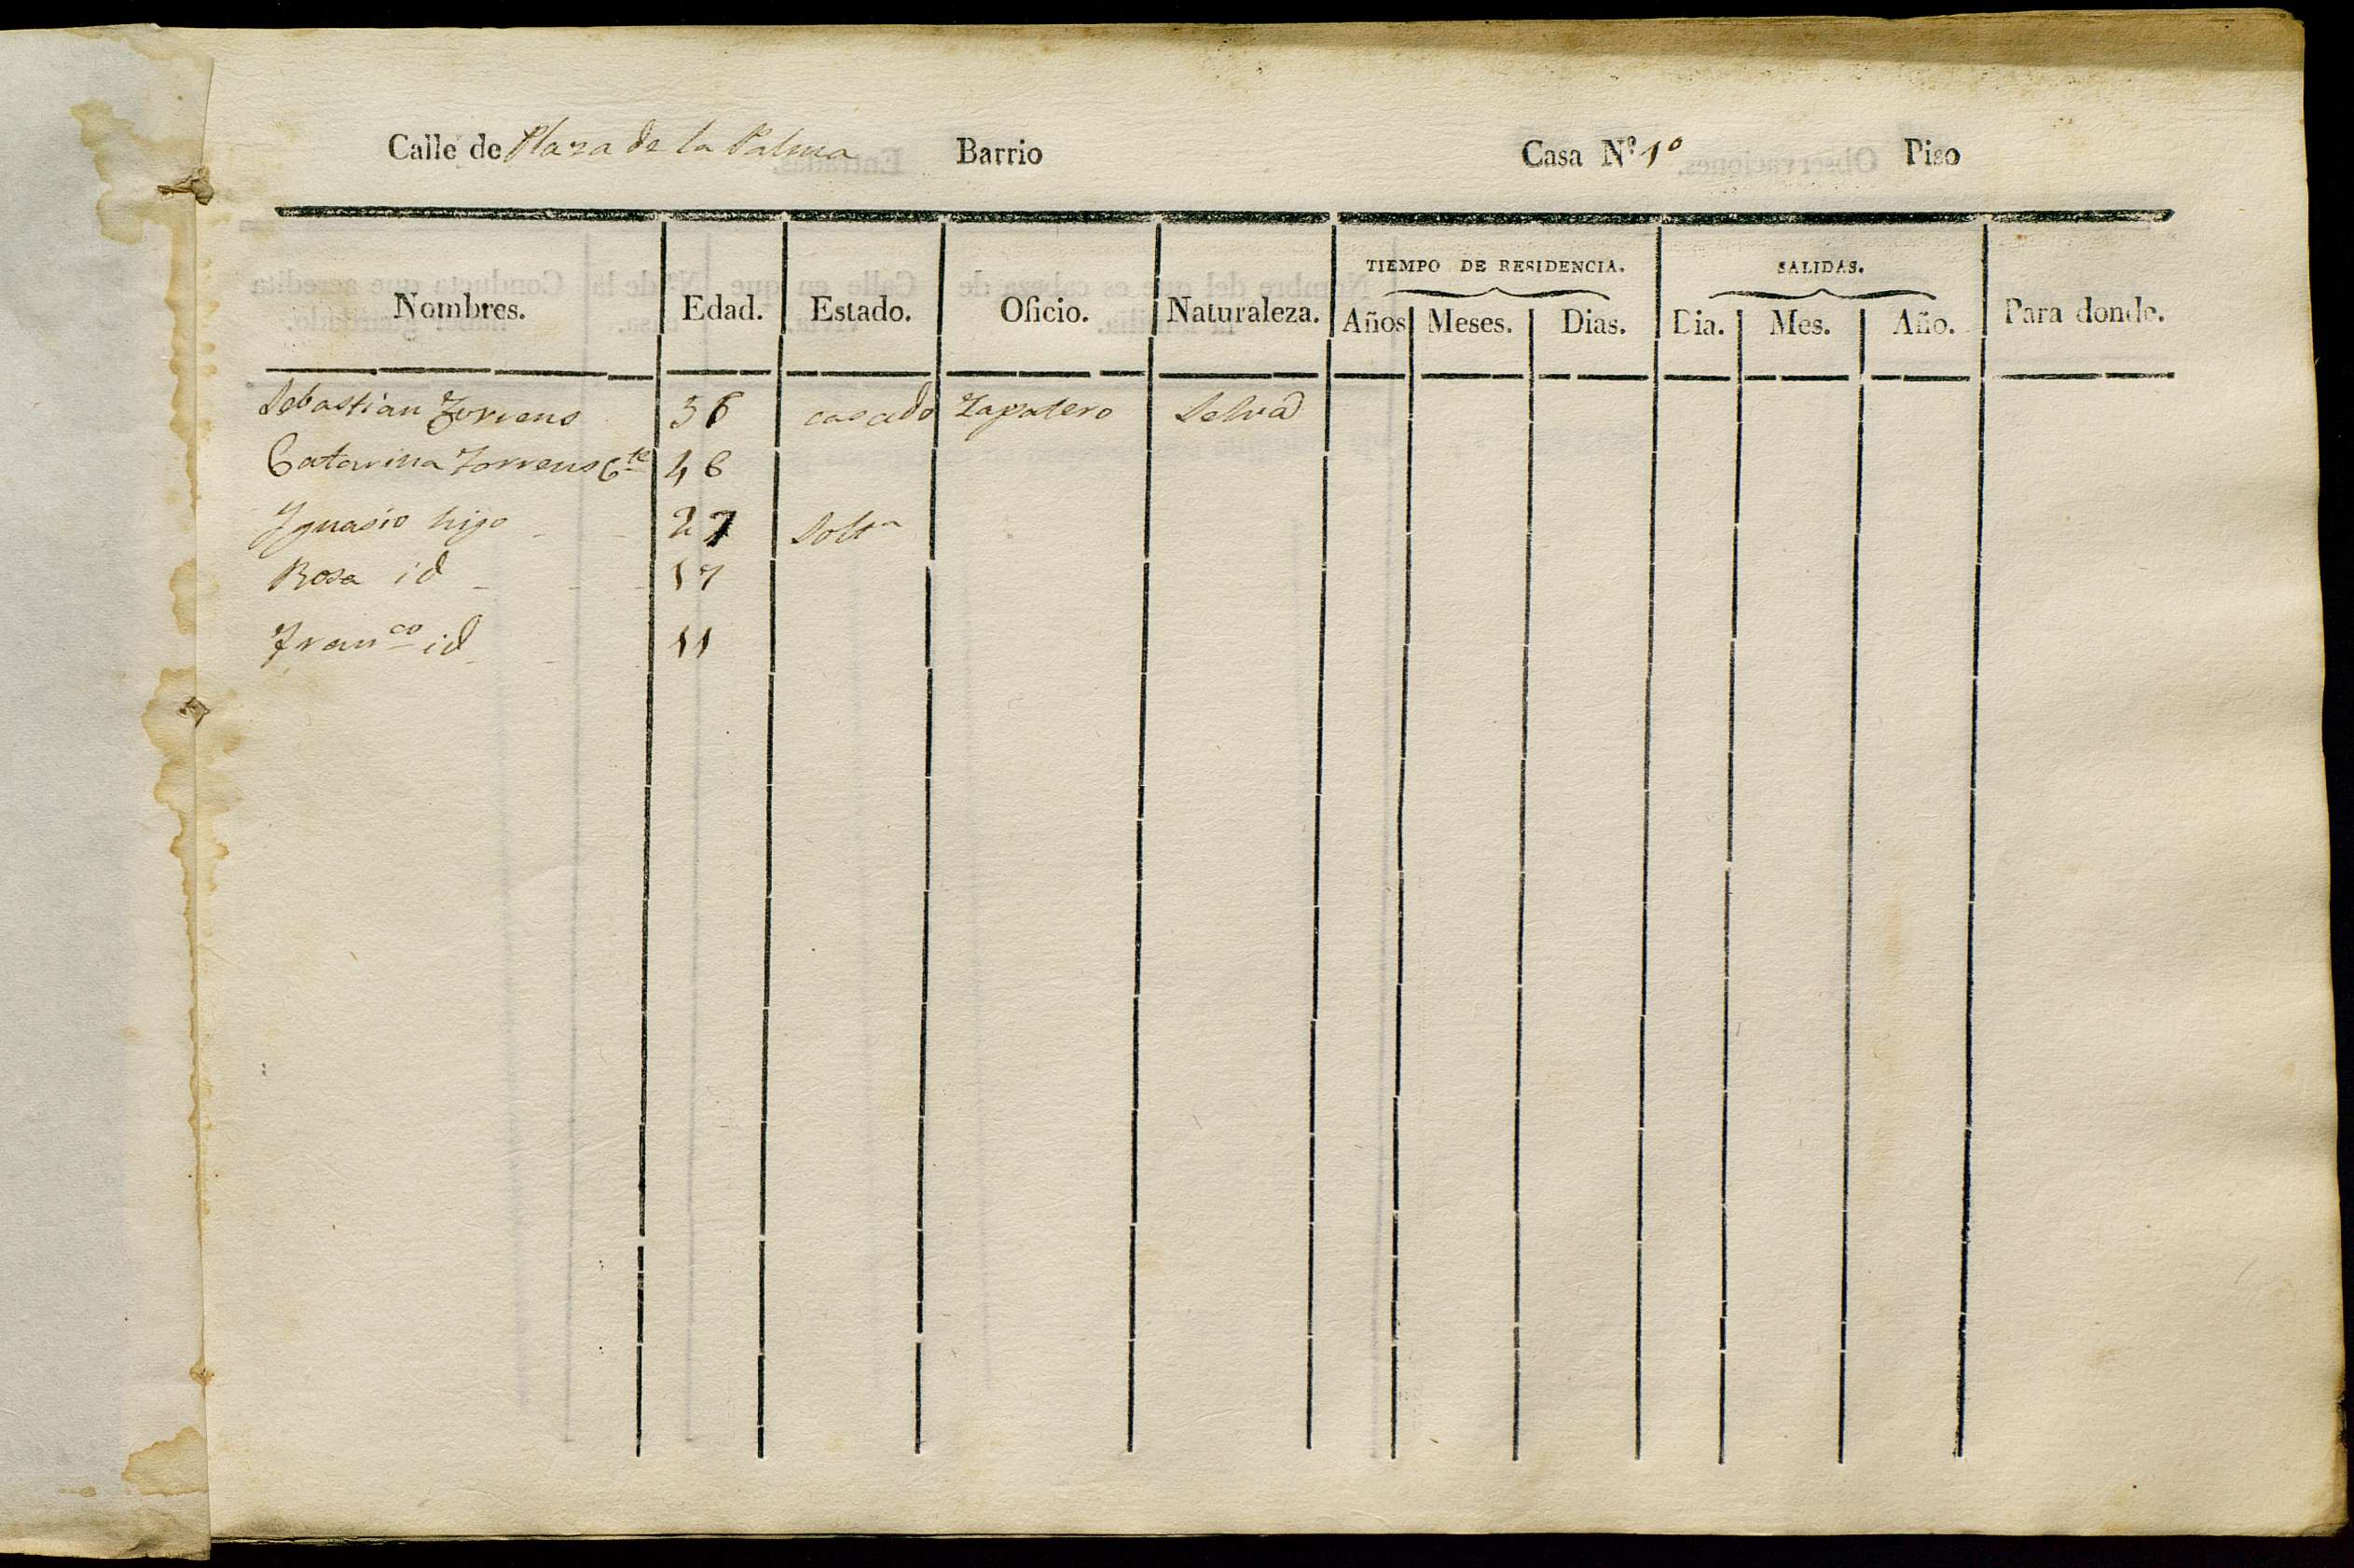 Calle de Plaza de la Palma Barrio Casa Nº 1º Piso
TIEMPO DE RESIDENCIA. SALIDAS.
Nombres. Edad. Estado. Oficio. Naturaleza. Años Meses. Dias. Dia. Mes. Año. Para donde.
Sebastian Torrens 56 casado Zapatero Selva
Catarina Torrens Cte 46
Ignasio hijo 27 Solto
Rosa id 17
Franco id 11